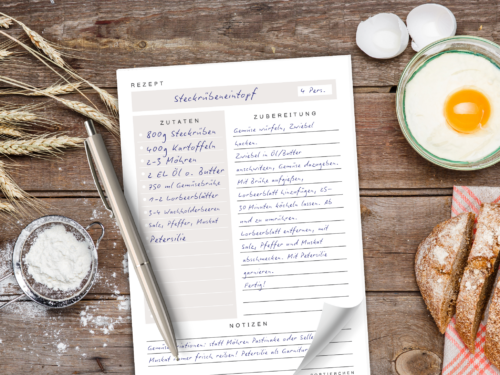 REZEPT
Steckrübeneintopf
4 Pers.
ZUTATEN
800g Steckrüben
400g Kartoffeln
2-3 Möhren
2 EL Öl o. Butter
750 ml Gemüsebrühe
1-2 Lorbeerblätter
3-4 Wacholderbeeren
Salz, Pfeffer, Muskat
Petersilie
ZUBEREITUNG
Gemüse würfeln, Zwiebel
hacken.
Zwiebel in Öl/Butter
anschwitzen, Gemüse dazugeben.
Mit Brühe aufgießen,
Lorbeerblatt hinzufügen, 25-
30 Minuten köcheln lassen. Ab
und zu umrühren.
Lorbeerblatt entfernen, mit
Salz, Pfeffer und Muskat
abschmecken. Mit Petersilie
garnieren.
Fertig!
NOTIZEN
statt Möhren Pastinake oder
Muskat immer frisch reiben! Petersilie als